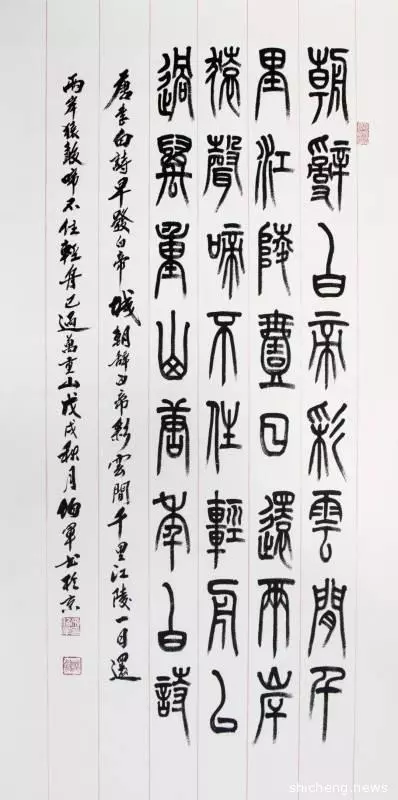 朝辭白帝彩雲間千
里江陵壹日還兩岸
猿聲啼不住輕舟已
過萬重山唐李白詩
唐李白詩早發白帝城朝辭白帝彩雲間千里江陵一日還
兩岸猿聲啼不住輕舟已過萬重山戊戌秋月伯軍书於京
shicheng.news